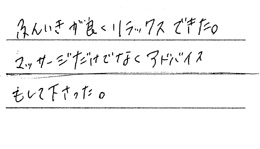 ふんいきが良くリラックスできた。
マッサージだけでなくアドバイス
もして下さった。